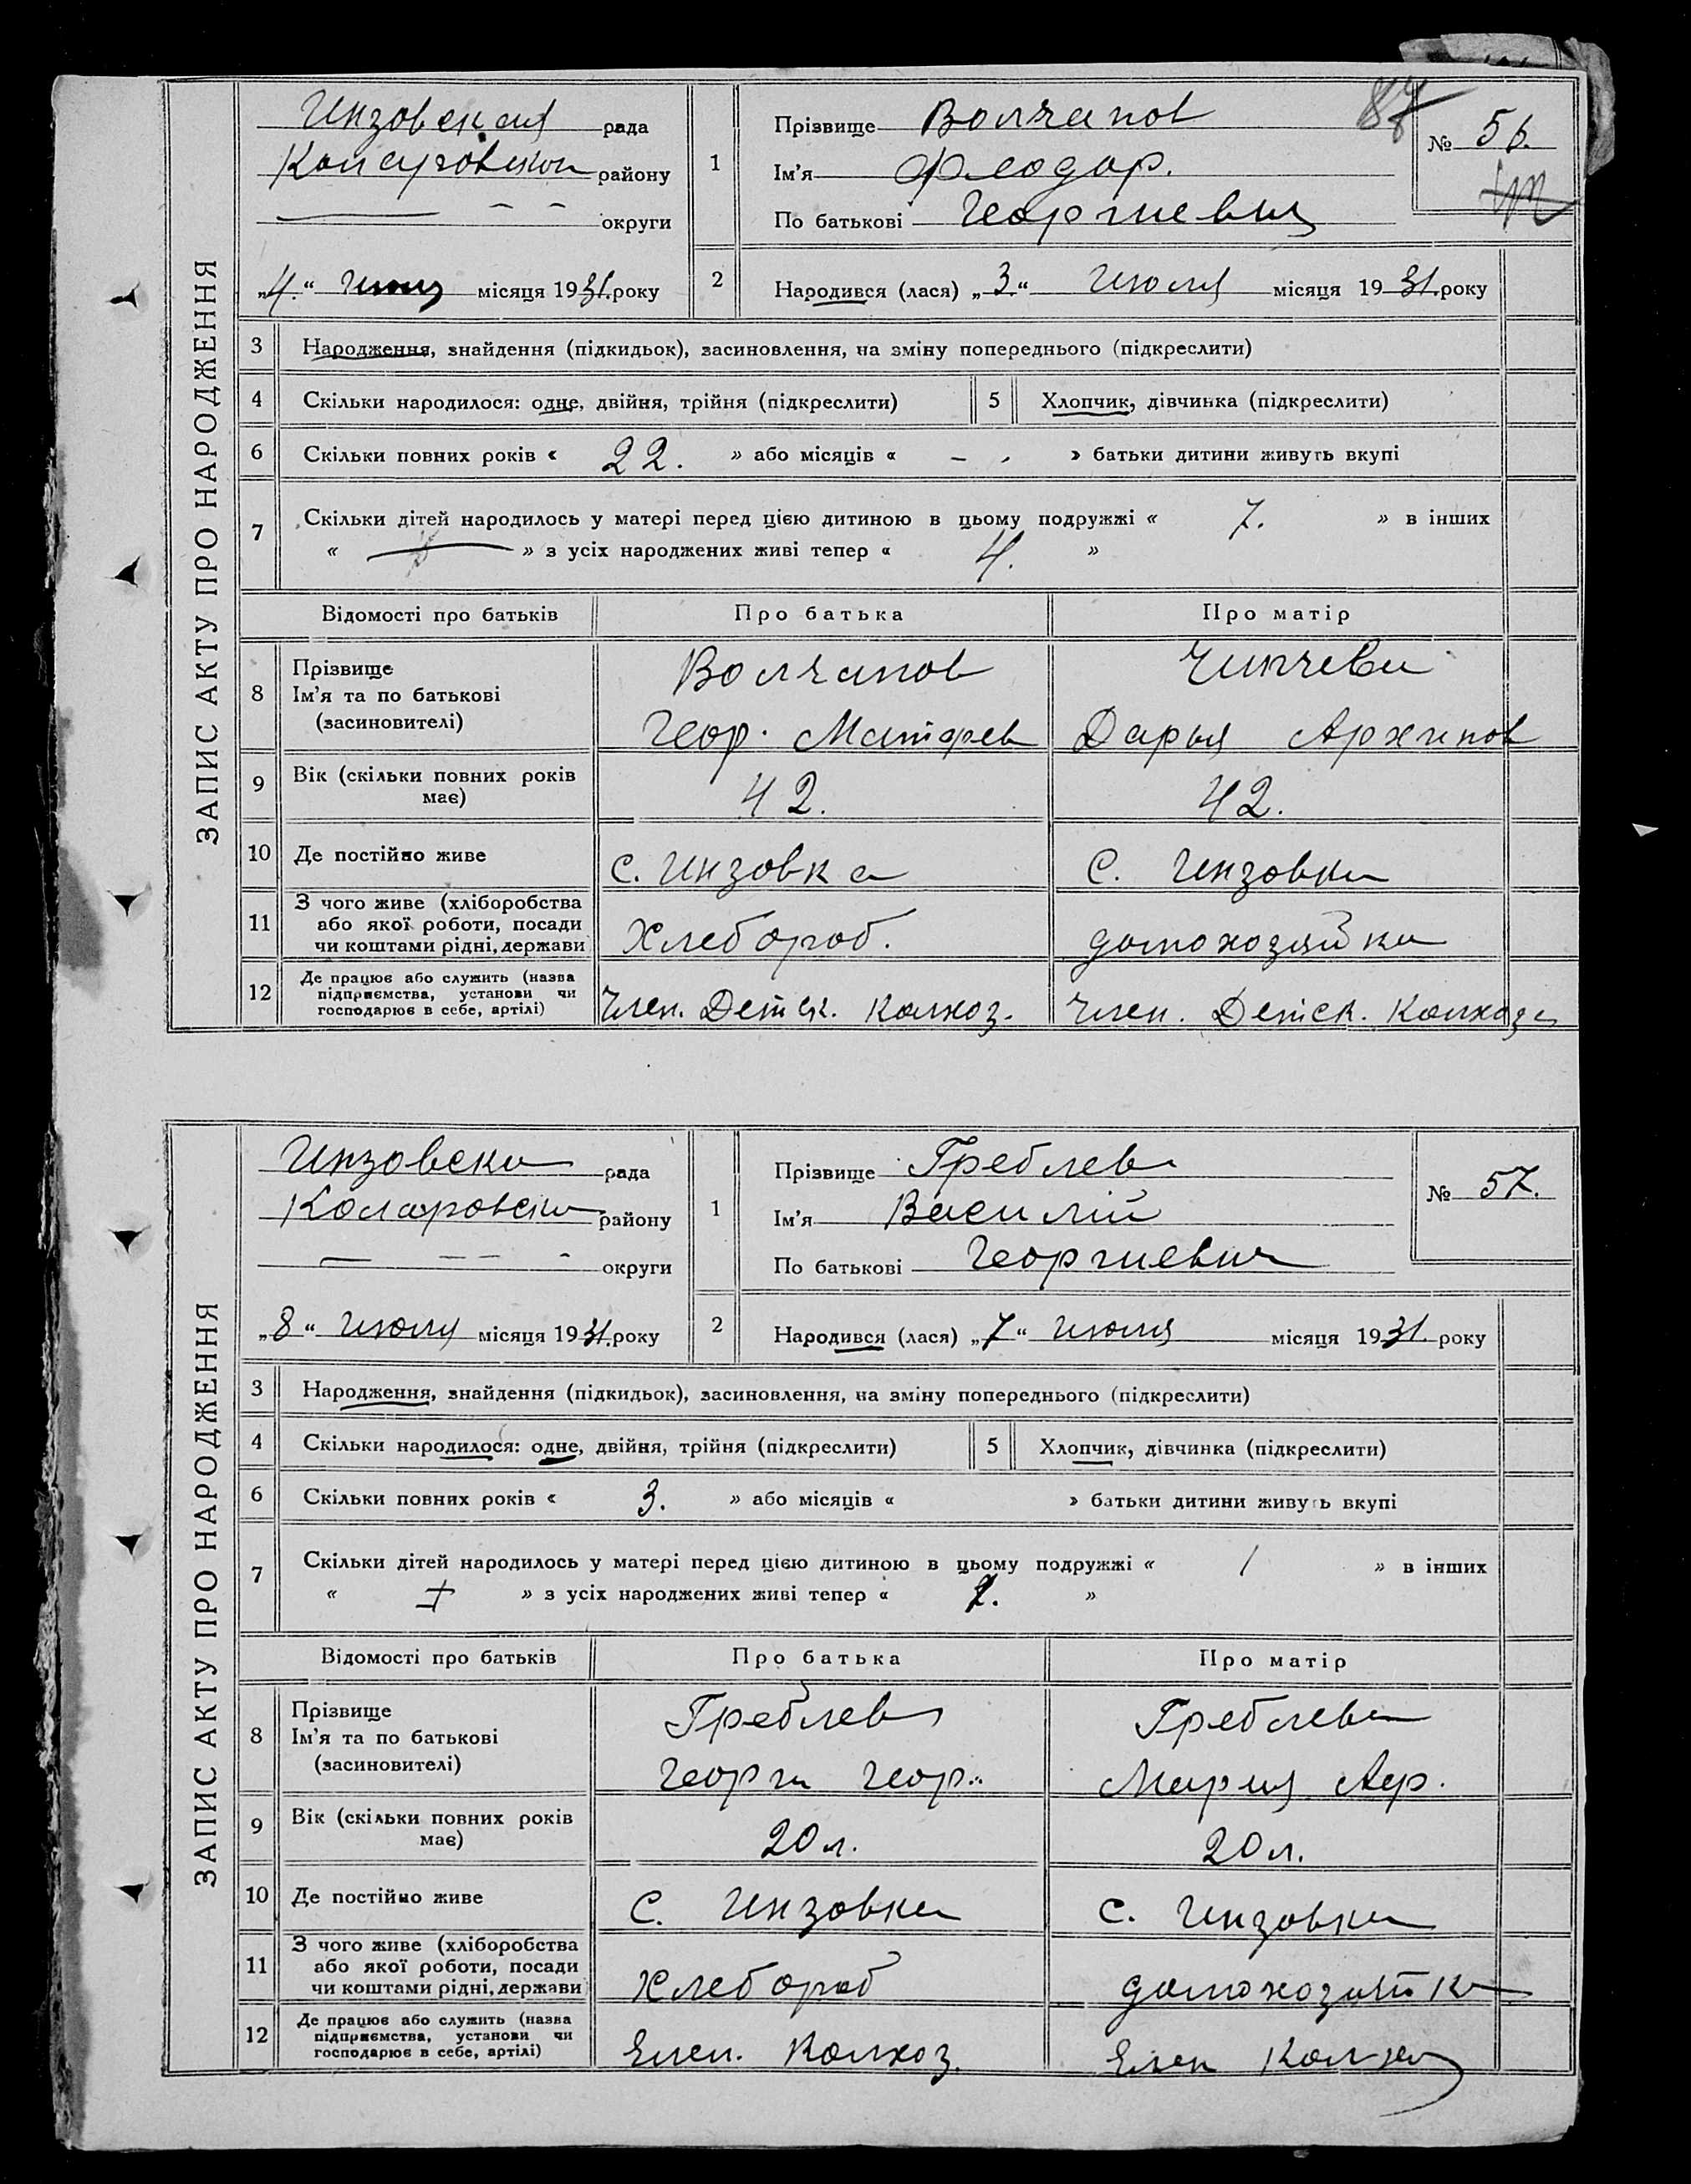 ЗАПИС АКТУ ПРО НАРОДЖЕННЯ
Инзовская рада
района району
округи
„4.“ Июля місяця 1931. року
1
Прізвище Волчанов
Ім'я Феодор.
По батькові Георгиевич
№ 56.
2
Народився (лася) „3“ Июля місяця 1931. року
3 Народження, знайдення (підкидьок), засиновлення, на зміну попереднього (підкреслити)
4 Скільки народилося: одне, двійня, трійня (підкреслити) 5 Хлопчик, дівчинка (підкреслити)
6 Скільки повних років « 22. » або місяців « - - » батьки дитини живуть вкупі
7 Скільки дітей народилось у матері перед цією дитиною в цьому подружжі « 7. » в інших
« — » з усіх народжених живі тепер « 4. »
Відомості про батьків Про батька Про матір
8 Прізвище Ім'я та по батькові (засиновителі)
Волчанов Чипчева
Геор. Матфев Дарья Архипов
9 Вік (скільки повних років має) 42. 42.
10 Де постійно живе с. Инзовка С. Инзовка
11 З чого живе (хліборобства або якої роботи, посади чи коштами рідні, держави Хлебороб. домохозяйка
12 Де працює або служить (назва підприємства, установи чи господарює в себе, артілі) Член. Детск. Колхоз. Член. Детск. Колхоза
ЗАПИС АКТУ ПРО НАРОДЖЕННЯ
Инзовска рада
Коларовско району
округи
„8“ Июля місяця 1931. року
1
Прізвище Греблев
Ім'я Василий
По батькові Георгиевич
№ 57.
2
Народився (лася) „7“ Июля місяця 1931. року
3 Народження, знайдення (підкидьок), засиновлення, на зміну попереднього (підкреслити)
4 Скільки народилося: одне, двійня, трійня (підкреслити) 5 Хлопчик, дівчинка (підкреслити)
6 Скільки повних років « 3. » або місяців « » батьки дитини живуть вкупі
7 Скільки дітей народилось у матері перед цією дитиною в цьому подружжі « 1 » в інших
« » з усіх народжених живі тепер « »
Відомості про батьків Про батька Про матір
8 Прізвище Ім'я та по батькові (засиновителі)
Греблев Греблева
Георги Геор. Мария
9 Вік (скільки повних років має) 20 л. 20 л.
10 Де постійно живе С. Инзовка С. Инзовка
11 З чого живе (хліборобства або якої роботи, посади чи коштами рідні, держави Хлебороб домохозяйка
12 Де працює або служить (назва підприємства, установи чи господарює в себе, артілі) Член. Колхоз. Член